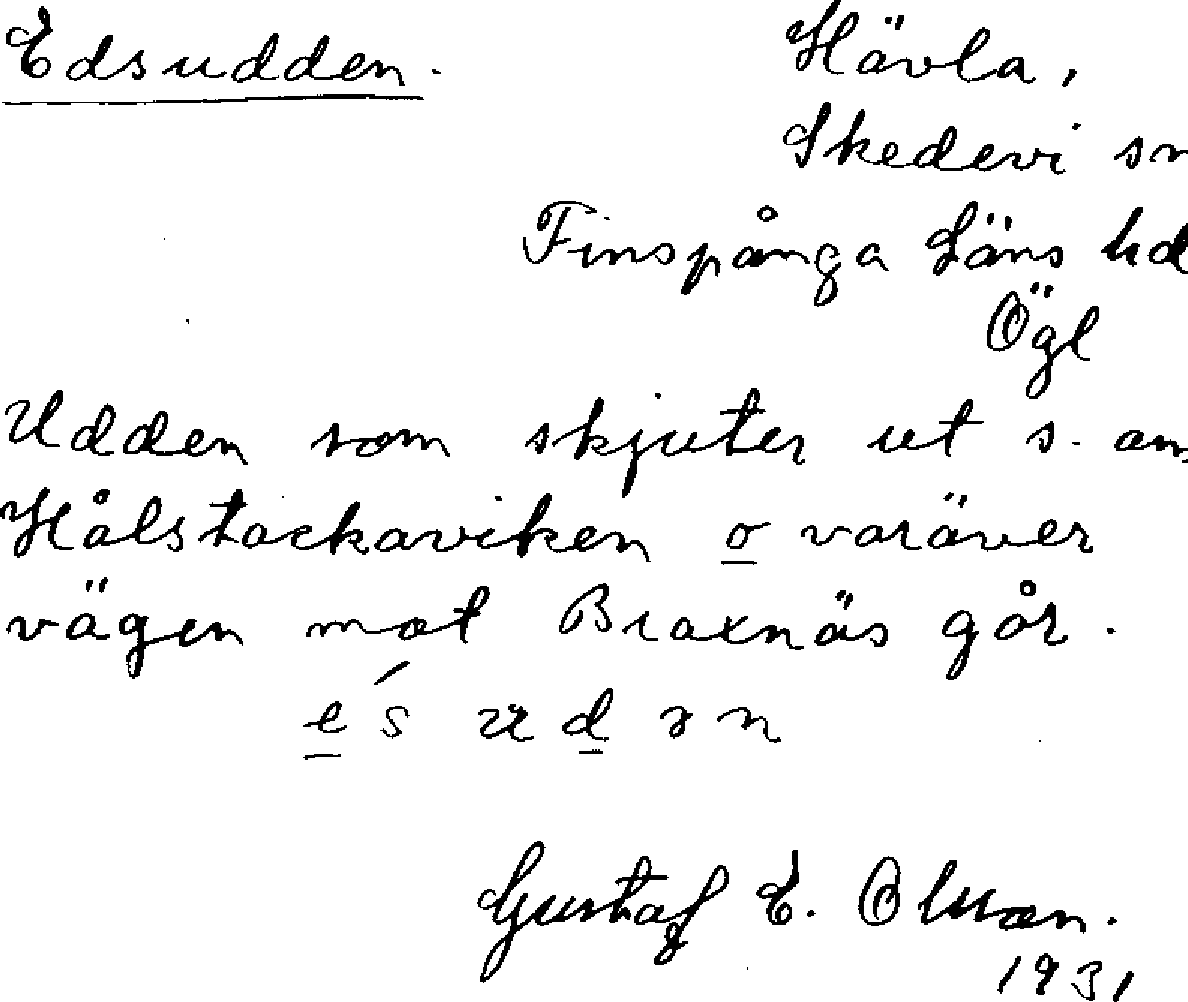 Edsudden.
Hävla,
Skedevi sn
Finspånga Läns hd
Ögl
Udden som skjuter ut s. om
Hålstockaviken o varöver
vägen mot Braxnäs går.
Gustaf E. Olsson.
1931